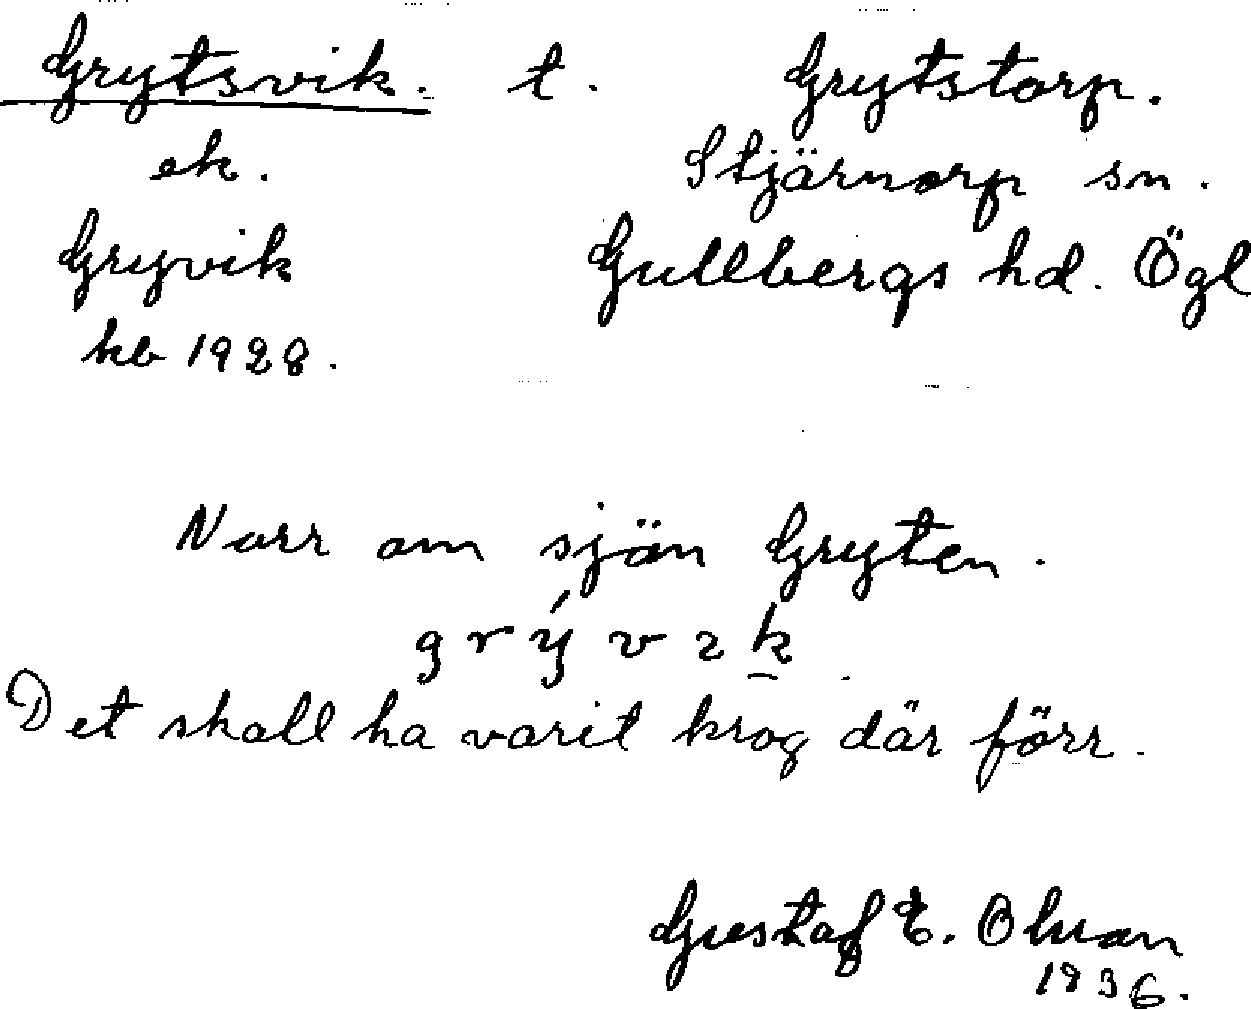 Grytsvik. t. Grytstorp.
ek. Stjärnorp sn.
Gryvik Gullbergs hd. Ögl
kb 1928.
Norr om sjön Gryten.
grývɩk
Det skall ha varit krog där förr.
Gustaf E. Olson
1936.